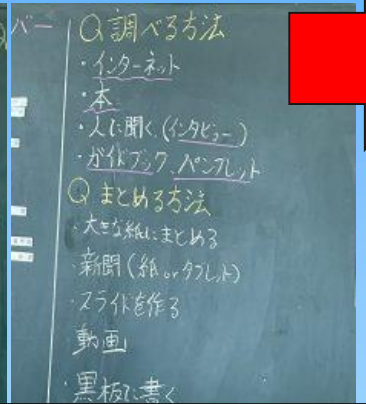 バー
Q 調べる方法
・インターネット
・本
・人に聞く(インタビュー)
・ガイドブック、パンフレット
Q まとめる方法
・大きな紙にまとめる
・新聞(紙 or タブレット)
・スライドを作る
動画
・黒板に書く